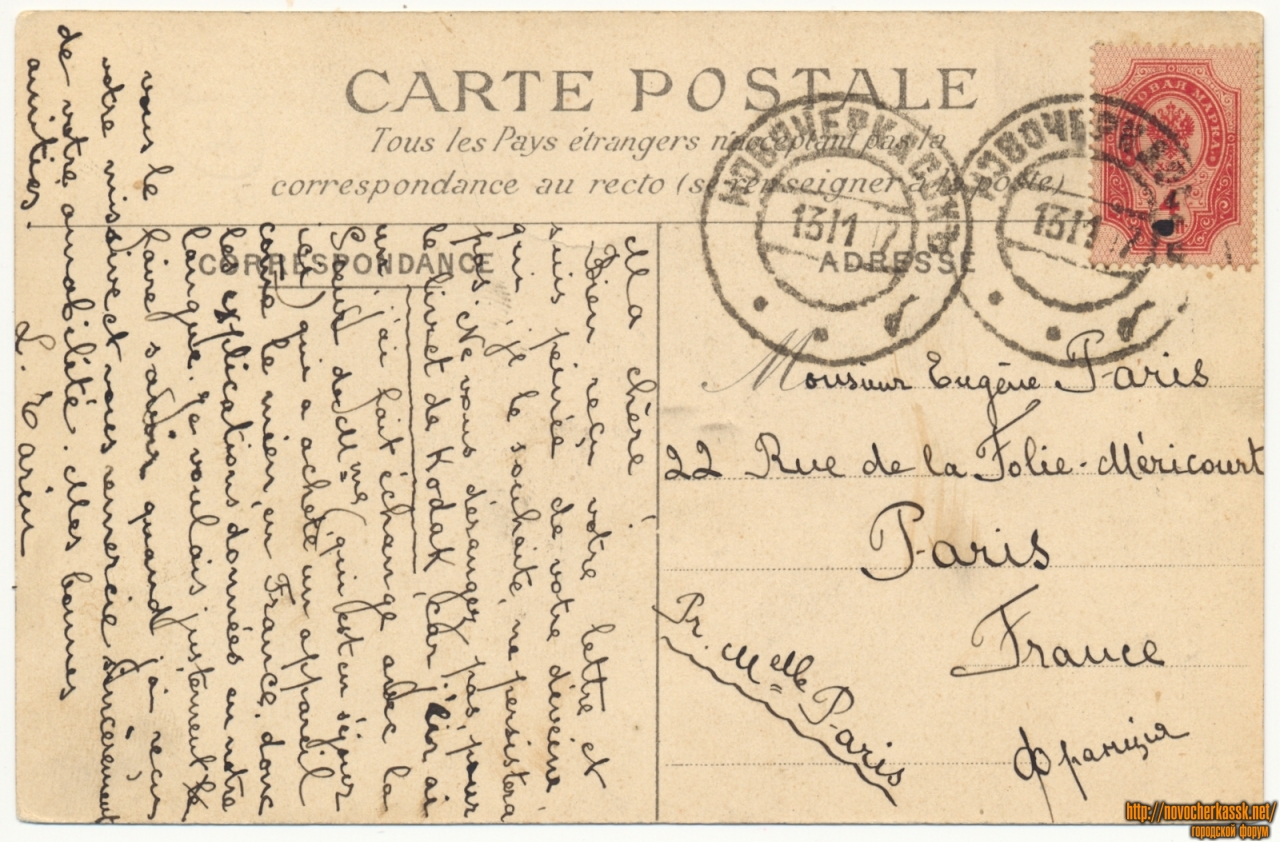 CARTE POSTALE
Tous les Pays étrangers n'acceptant pas la
correspondance au recto (se renseigner à la poste)
CORRESPONDANCE
ADRESSE
НОВОЧЕРКАССКЪ
13/1
НОВОЧЕРК
13/1
ПОЧТОВАЯ МАРКА
4
Ma chère !
Bien reçu votre lettre et
suis peinée de votre déveine
qui, je le souhaite, ne persistera
pas. Ne vous dérangez pas, pour
le livret de Kodak, car j'en ai
un. j'ai fait échange avec la
Sœur de Mme (qui est en séjour
ici) qui a acheté un appareil
comme le mien, en France, donc
les explications données en notre
langue. Je voulais justement le
faire savoir quand j'ai reçu
votre missive et vous remercie sincèrement
de votre amabilité. Mes bonnes
amitiés.
vous le
Monsieur Eugène Paris
22 Rue de la Folie-Méricourt
Paris
France
Франція
Pr. Melle Paris
http://novocherkassk.net/
городской форум